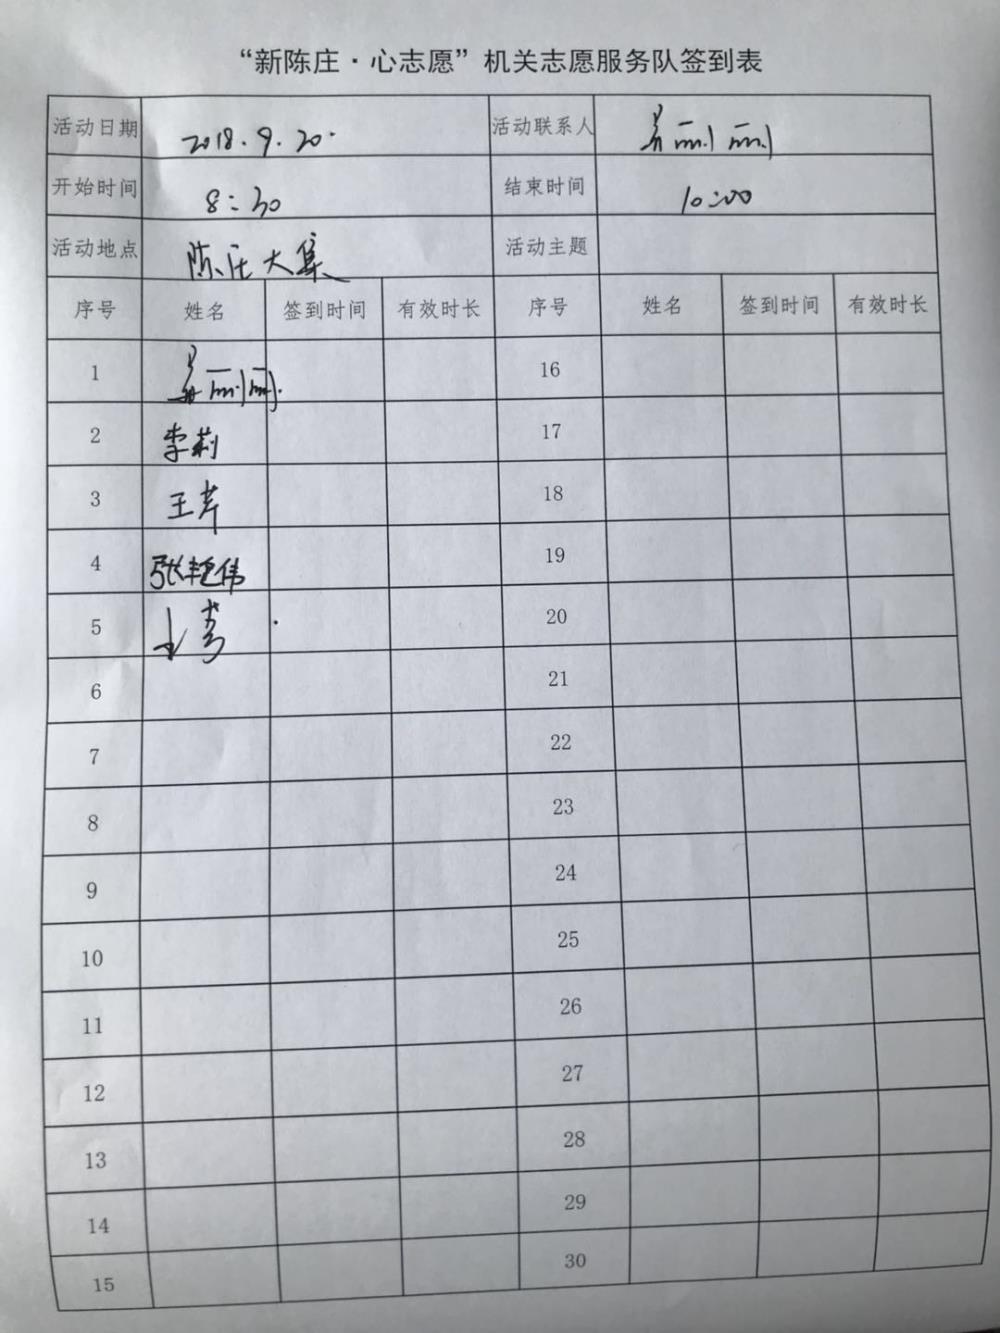 “新陈庄·心志愿”机关志愿服务队签到表
活动日期 2018.9.20. 活动联系人 丽丽
开始时间 8:30 结束时间 10:00
活动地点 陈庄大集 活动主题
序号 姓名 签到时间 有效时长 序号 姓名 签到时间 有效时长
1 丽丽 16
2 李莉 17
3 王芹 18
4 张艳伟 19
5 20
6 21
7 22
8 23
9 24
10 25
11 26
12 27
13 28
14 29
15 30